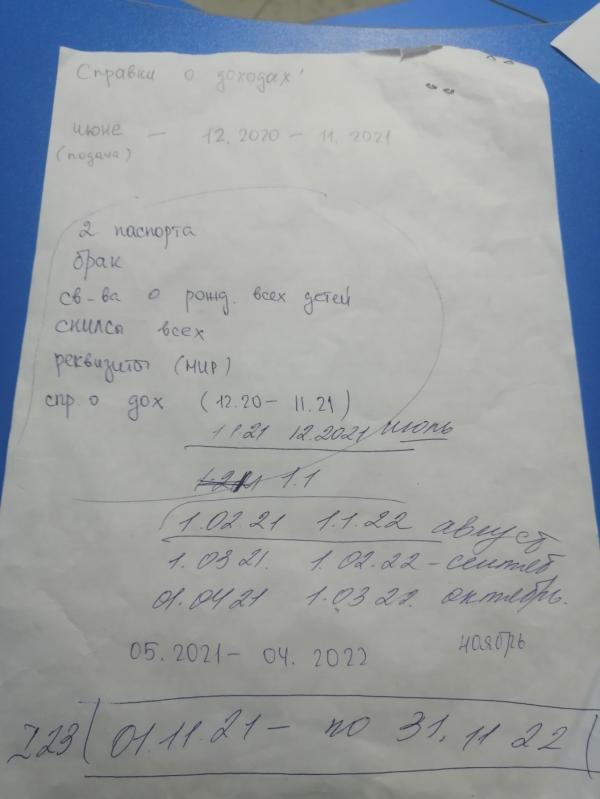 Справки о доходах!
июне — 12.2020 – 11.2021
(подача)
2 паспорта
брак
св-ва о рожд. всех детей
снилсы всех
реквизиты (МИР)
спр. о дох (12.20 – 11.21)
1.1.21 12.2021 июль
1.1
1.02.21 1.1.22 август
1.03 21. 1.02.22 – сентяб
01.04 21 1.03 22. октябрь.
05.2021 – 04.2022 ноябрь
01.11.21 – по 31.11 22